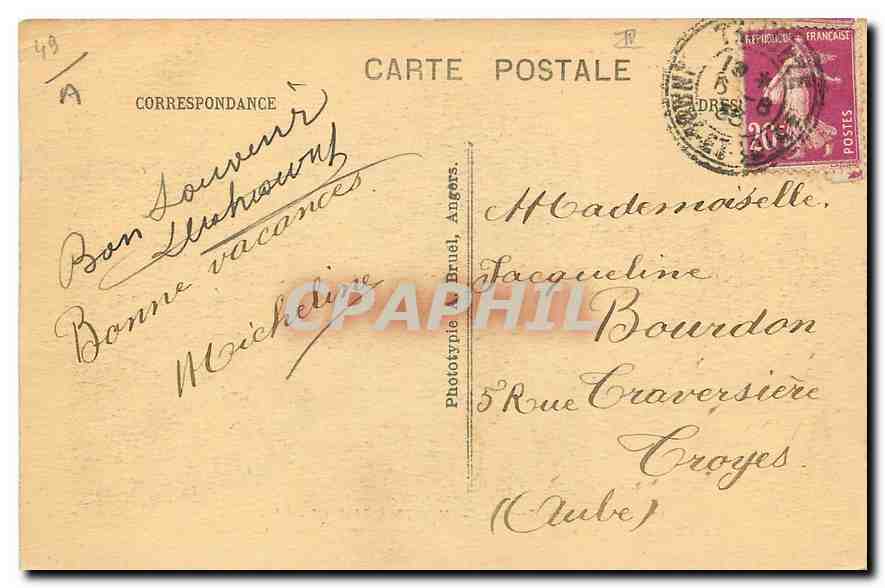 49
A
CARTE POSTALE
CORRESPONDANCE
REPUBLIQUE FRANÇAISE
20c
POSTES
Bon Souvenir
Bonne vacances.
Micheline
Phototypie A. Bruel, Angers.
CPAPHIL
Mademoiselle,
Jacqueline
Bourdon
5 Rue Traversière
Troyes.
(Aube)